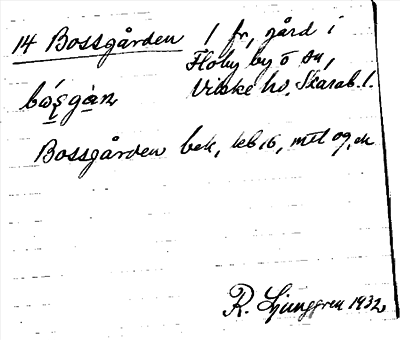 14 Bossgården 1 fr, gård i
Floby by o sn,
Vilske hd. Skarab. l.
bo̱s̱gàn
Bossgården bek, leb 16, mtl og, ek
R. Ljunggren 1932